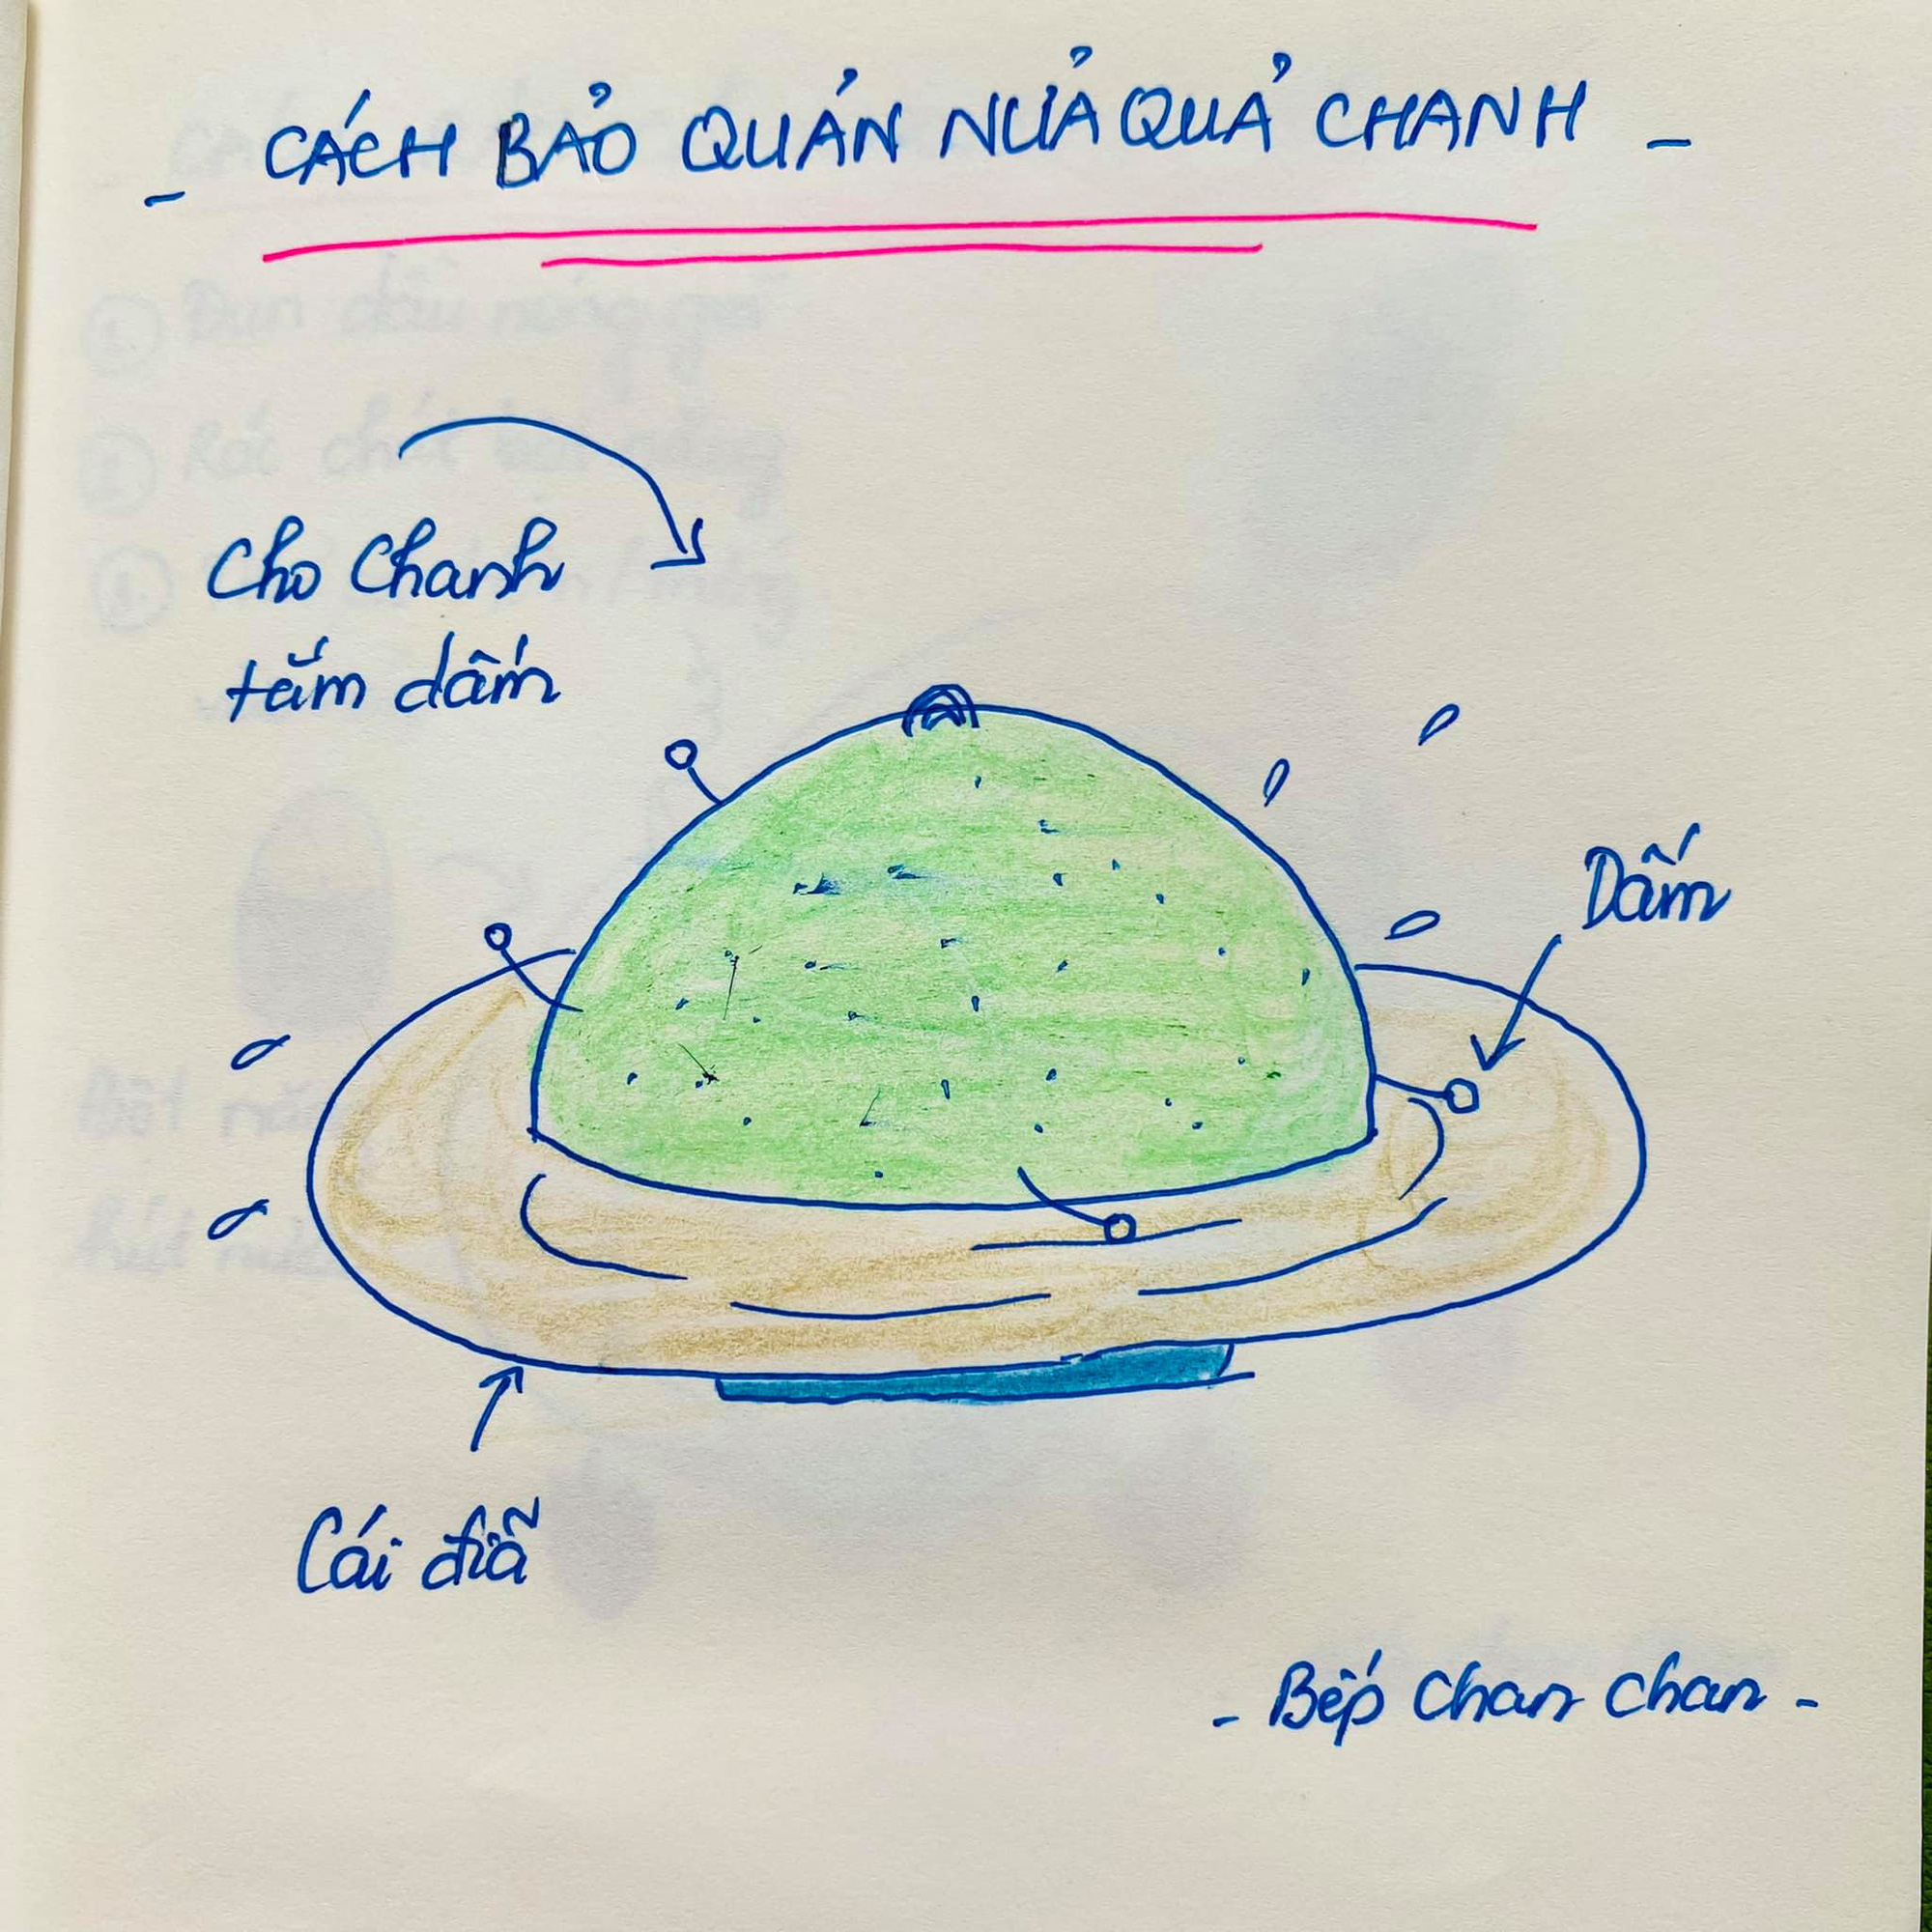 - CÁCH BẢO QUẢN NỬA QUẢ CHANH -
Cho Chanh
tắm dấm
Dấm
Cái đĩa
- Bếp Chan Chan -